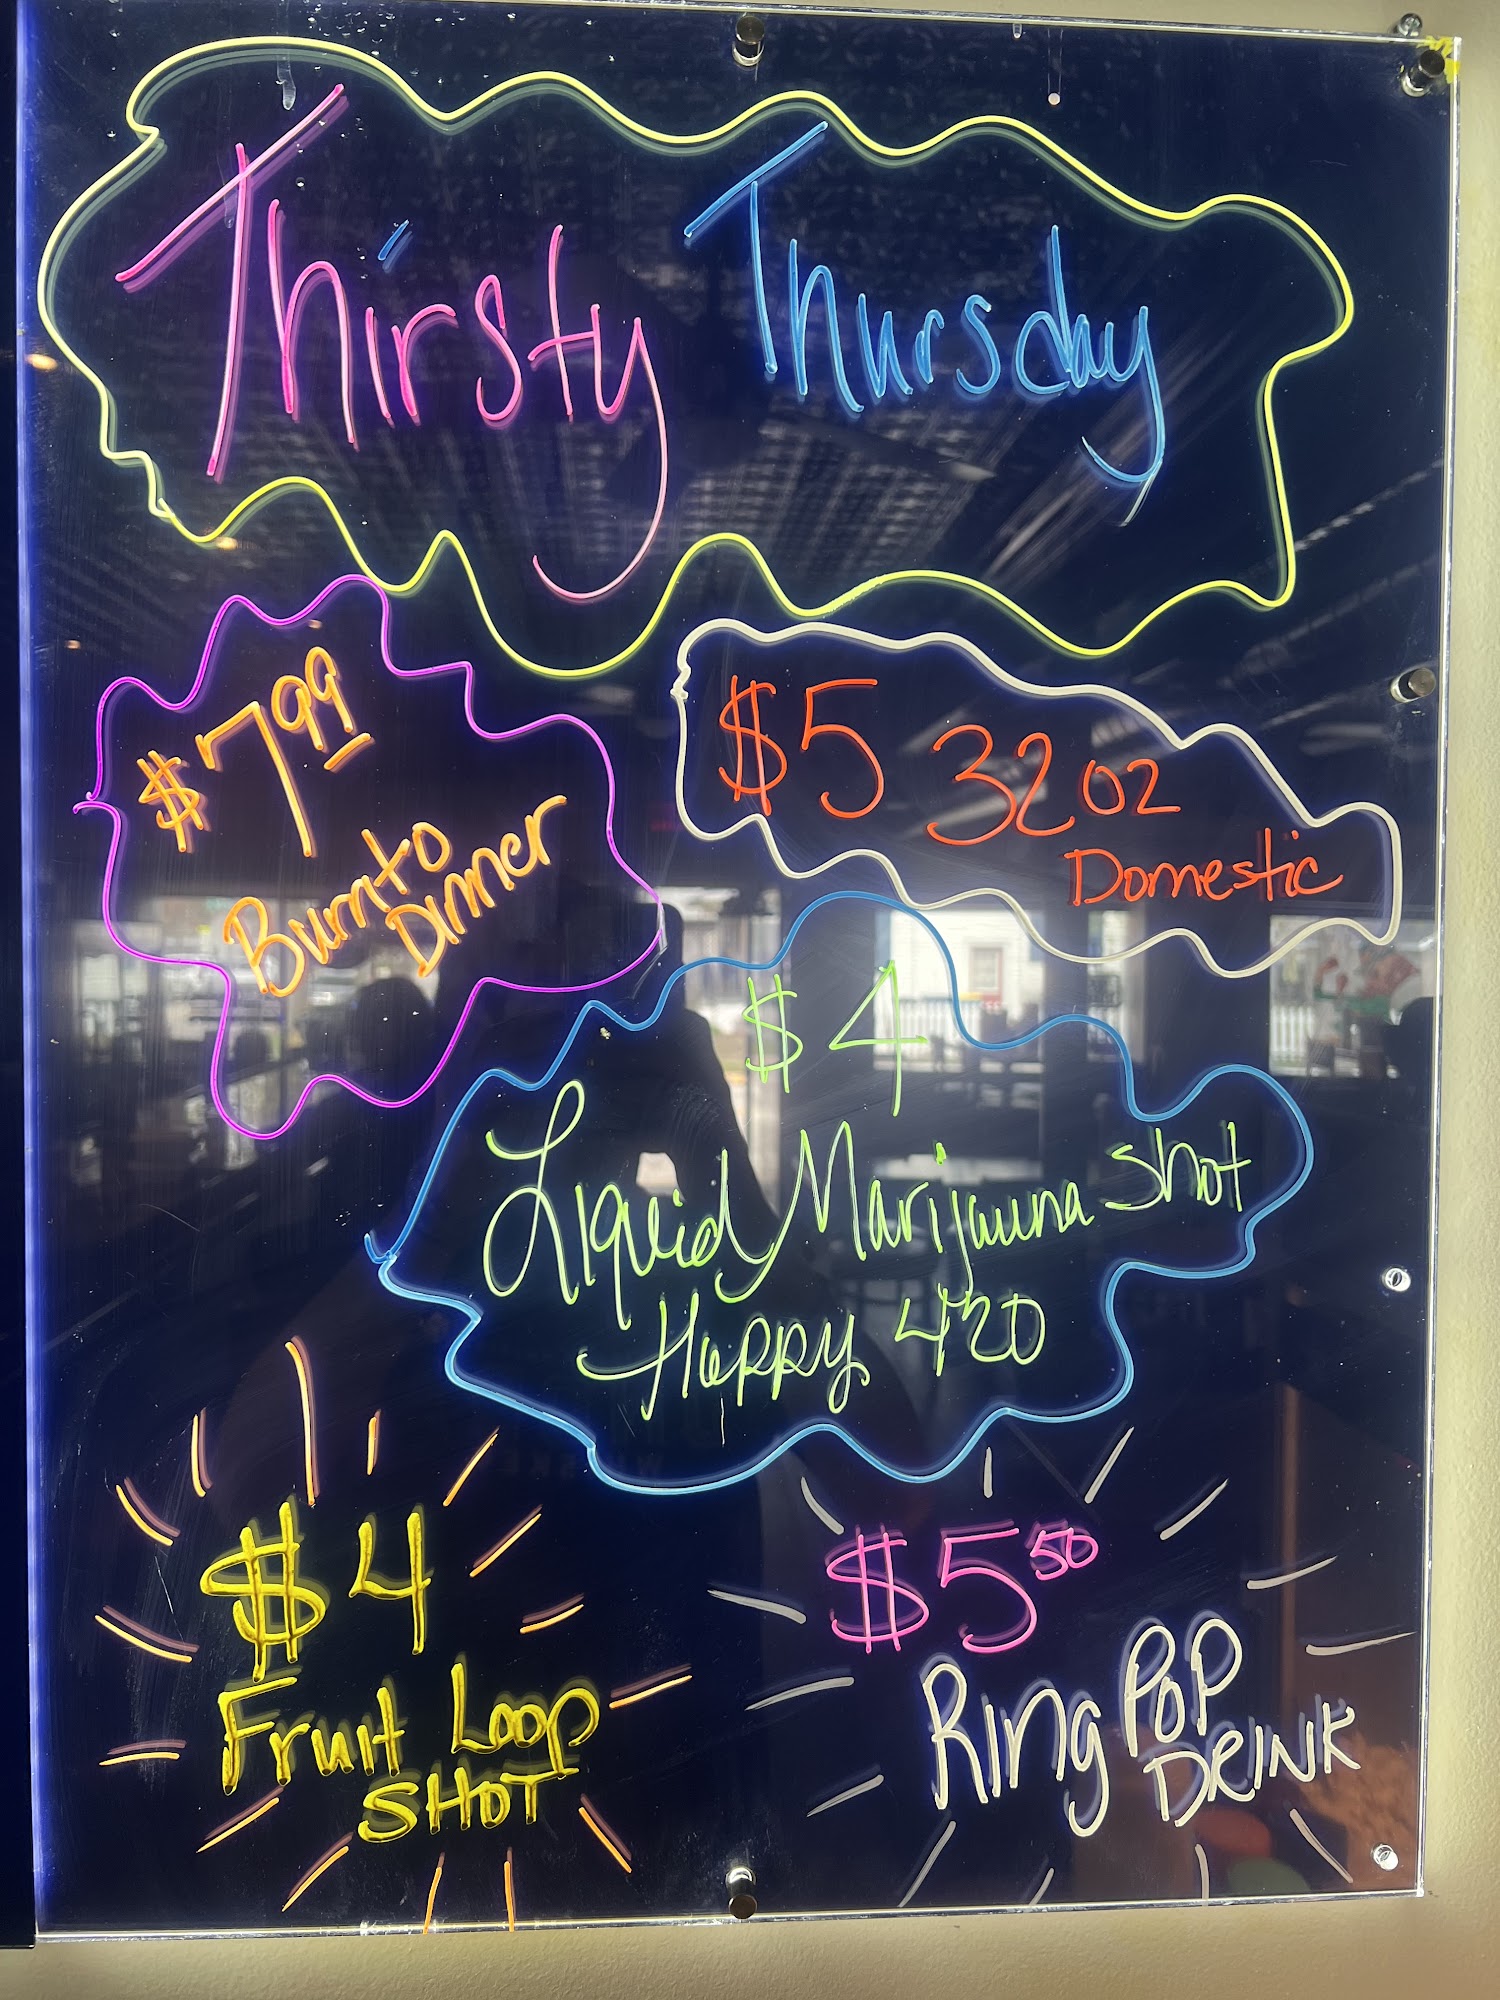 Thirsty Thursday
$7.99
Burrito
Dinner
$5 32 oz
Domestic
$4
Liquid Marijauna Shot
Happy 420
$4
Fruit Loop
SHOT
$5.50
Ring Pop
DRINK